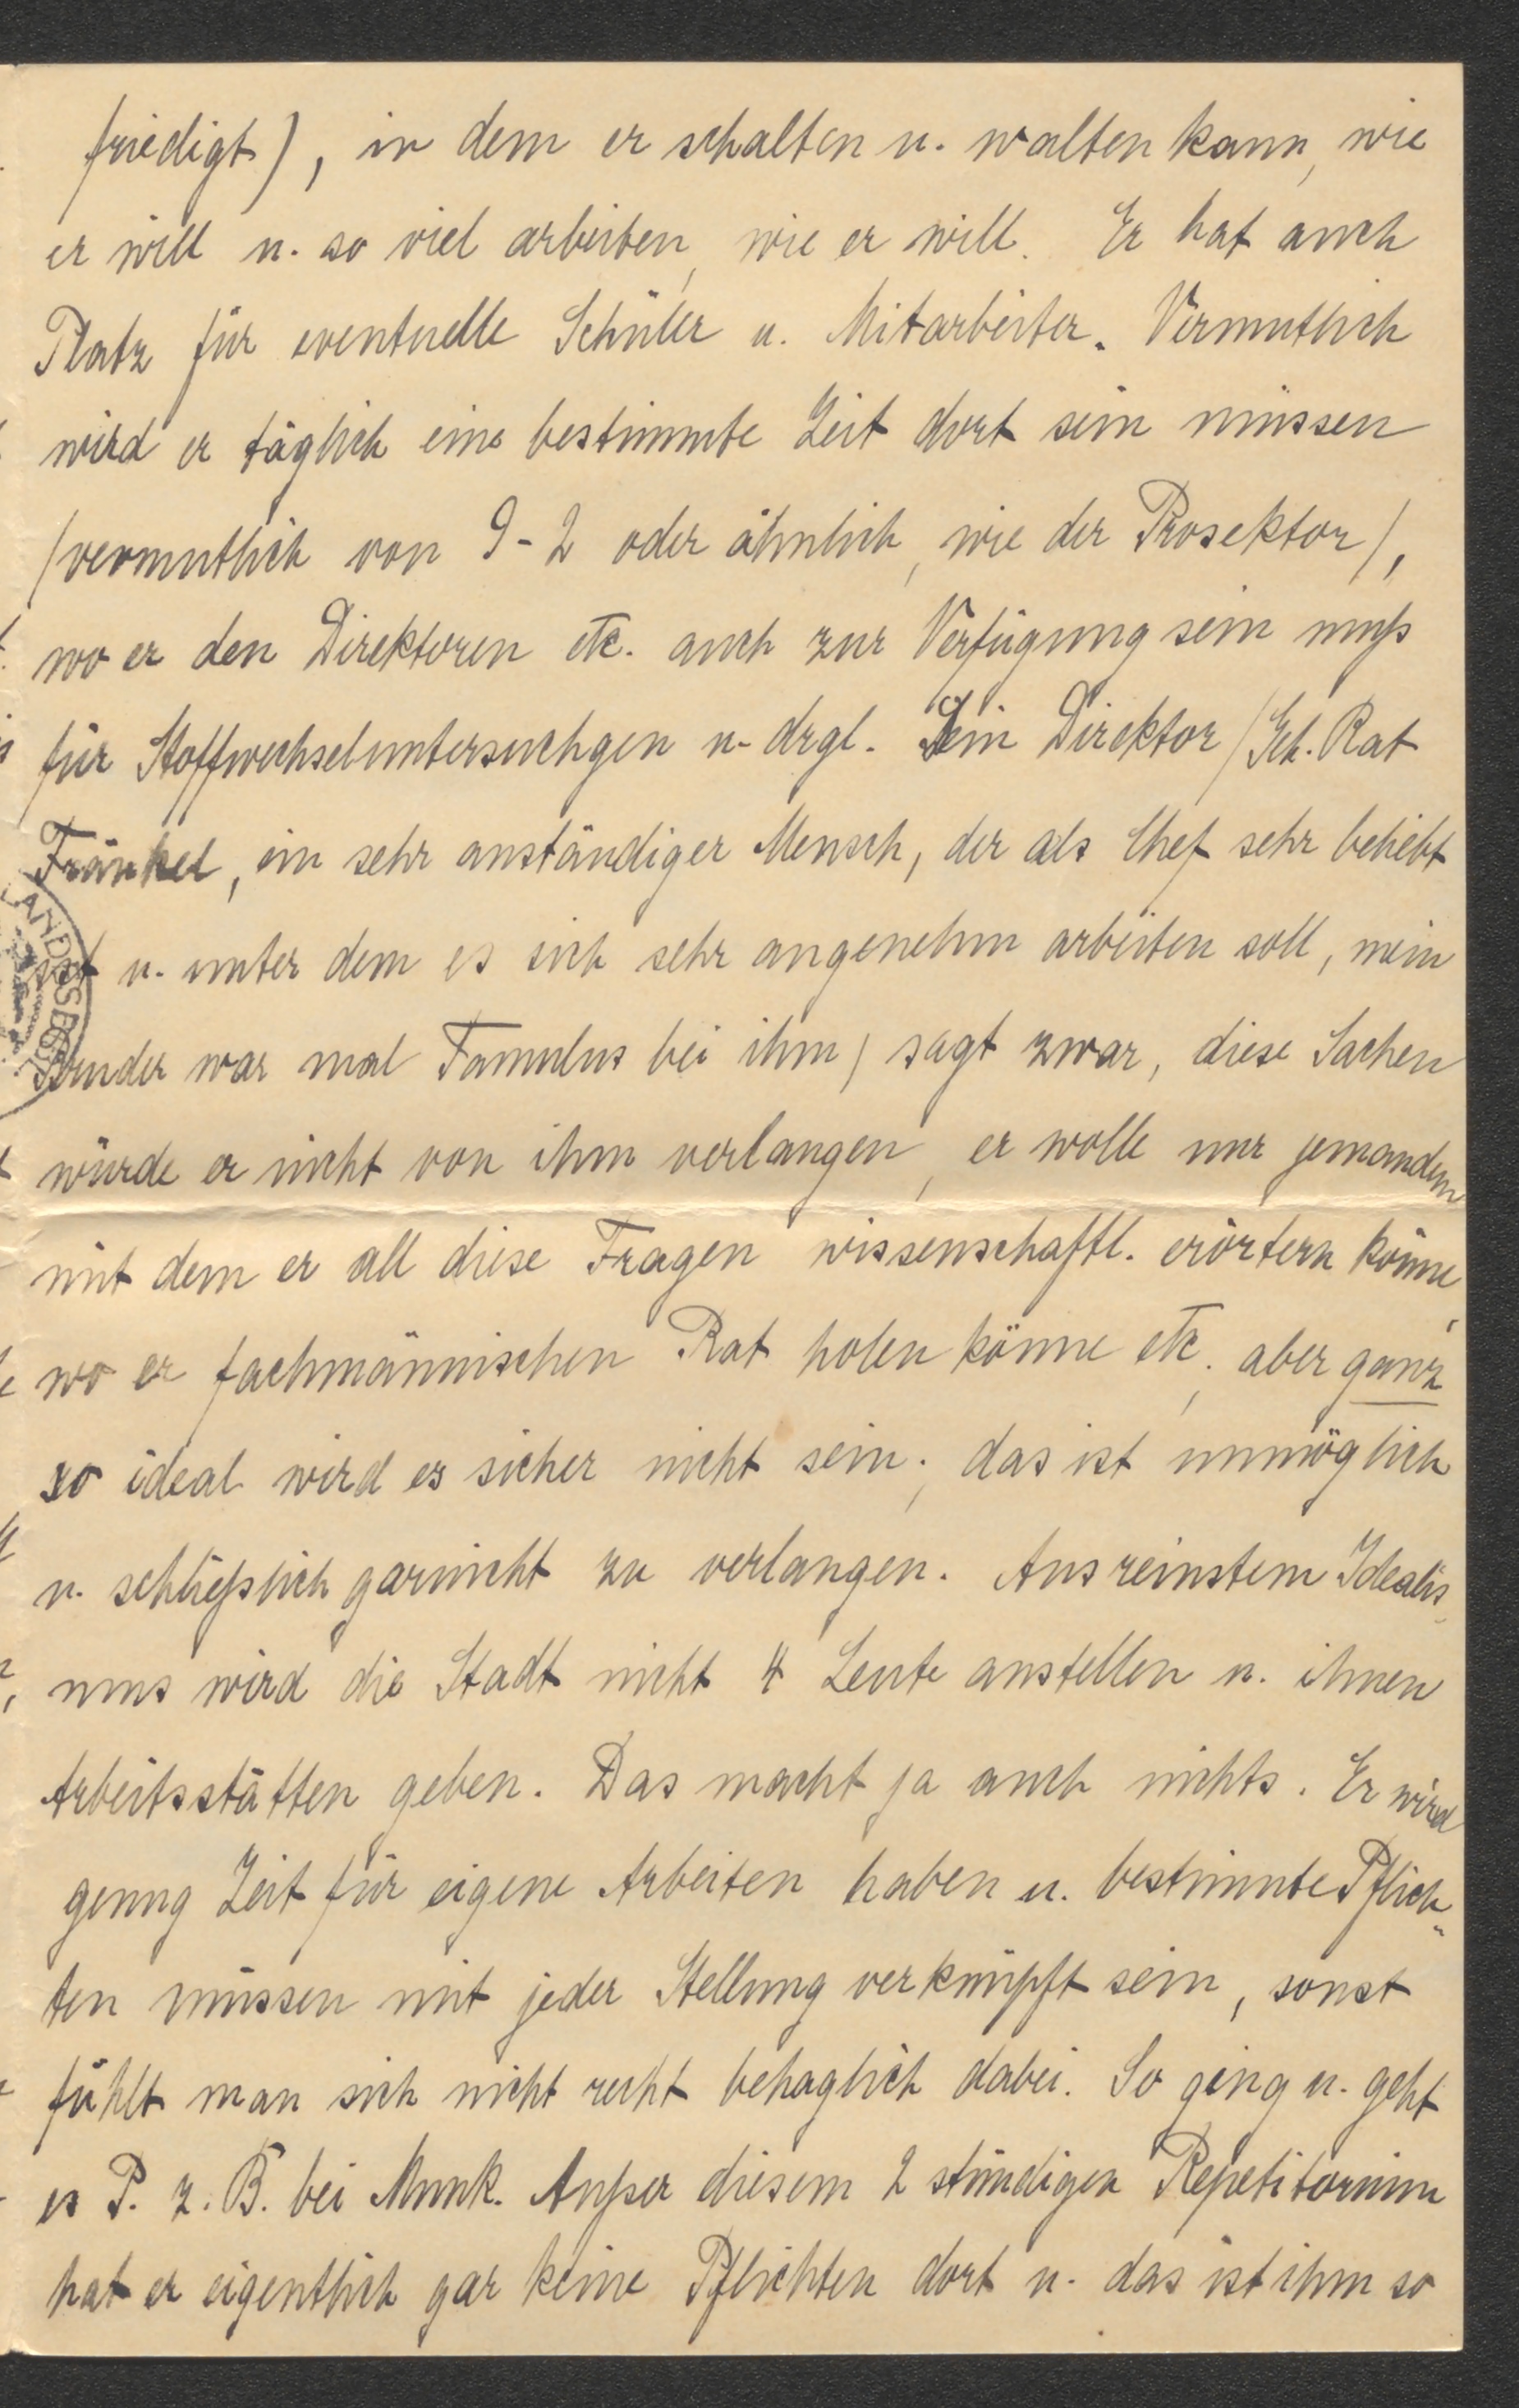 friedigt), in dem er schalten u. walten kann, wie
er will u. so viel arbeiten, wie er will. Er hat auch
Platz für eventuelle Schüler u. Mitarbeiter. Vermutlich
wird er täglich eine bestimmte Zeit dort sein müssen
(vermutlich von 9-2 oder ähnlich, wie der Prosektor),
wo er den Direktoren etc. auch zur Verfügung sein muß
für Stoffwechseluntersuchgen u. drgl. Sein Direktor (Geh. Rat
Fränkel, ein sehr anständiger Mensch, der als Chef sehr beliebt
ist u. unter dem es sich sehr angenehm arbeiten soll, mein
Bruder war mal Famulus bei ihm) sagt zwar, diese Sachen
würde er nicht von ihm verlangen, er wolle nur jemanden
mit dem er all diese Fragen wissenschaftl. erörtern könne,
wo er fachmännischen Rat holen könne etc., aber ganz
so ideal wird es sicher nicht sein; das ist unmöglich
u. schließlich garnicht zu verlangen. Aus reinstem Idealis-
mus wird die Stadt nicht 4 Leute anstellen u. ihnen
Arbeitsstätten geben. Das macht ja auch nichts. Er wird
genug Zeit für eigene Arbeiten haben u. bestimmte Pflich-
ten müssen mit jeder Stellung verknüpft sein, sonst
fühlt man sich nicht recht behaglich dabei. So ging u. geht
es P. z. B. bei Munk. Außer diesem 2 stündigen Repetitorium
hat er eigentlich gar keine Pflichten dort u. das ist ihm so